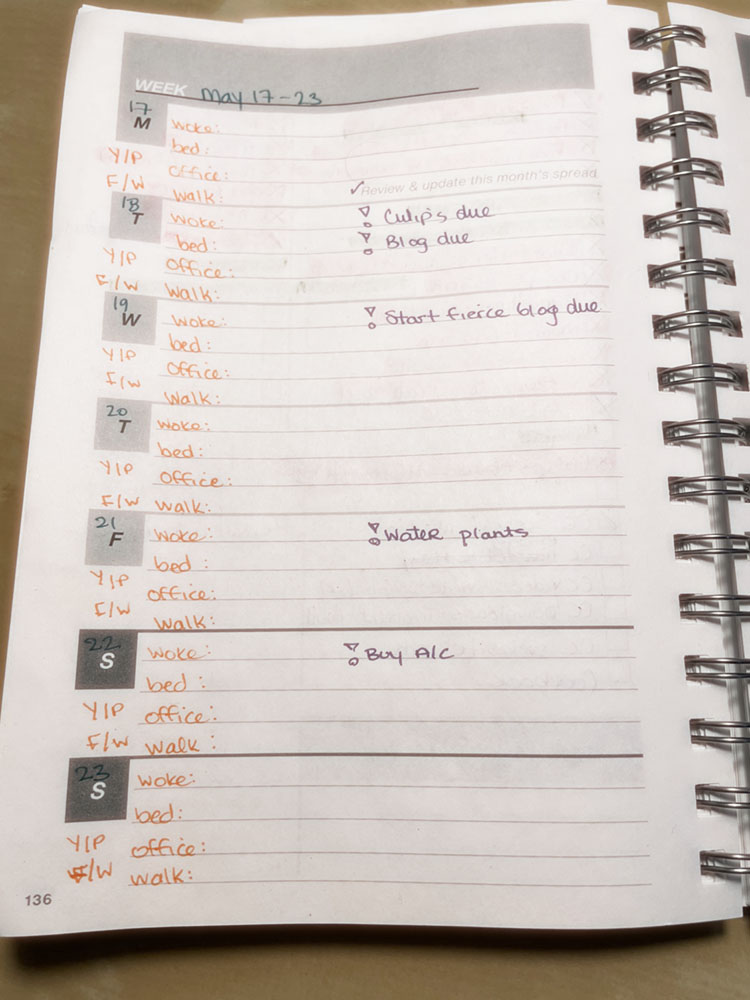 WEEK May 17-23
17
M woke:
bed:
Y/P office:
F/W walk:
✓Review & update this month's spread
18
T woke: Culip's due
bed: Blog due
Y/P office:
F/W walk:
19
W woke: Start fierce blog due
bed:
Y/P office:
F/W walk:
20
T woke:
bed:
Y/P office:
F/W walk:
21
F woke: Water plants
bed:
Y/P office:
F/W walk:
22
S woke: Buy A/C
bed:
Y/P office:
F/W walk:
23
S woke:
bed:
Y/P office:
F/W walk:
136